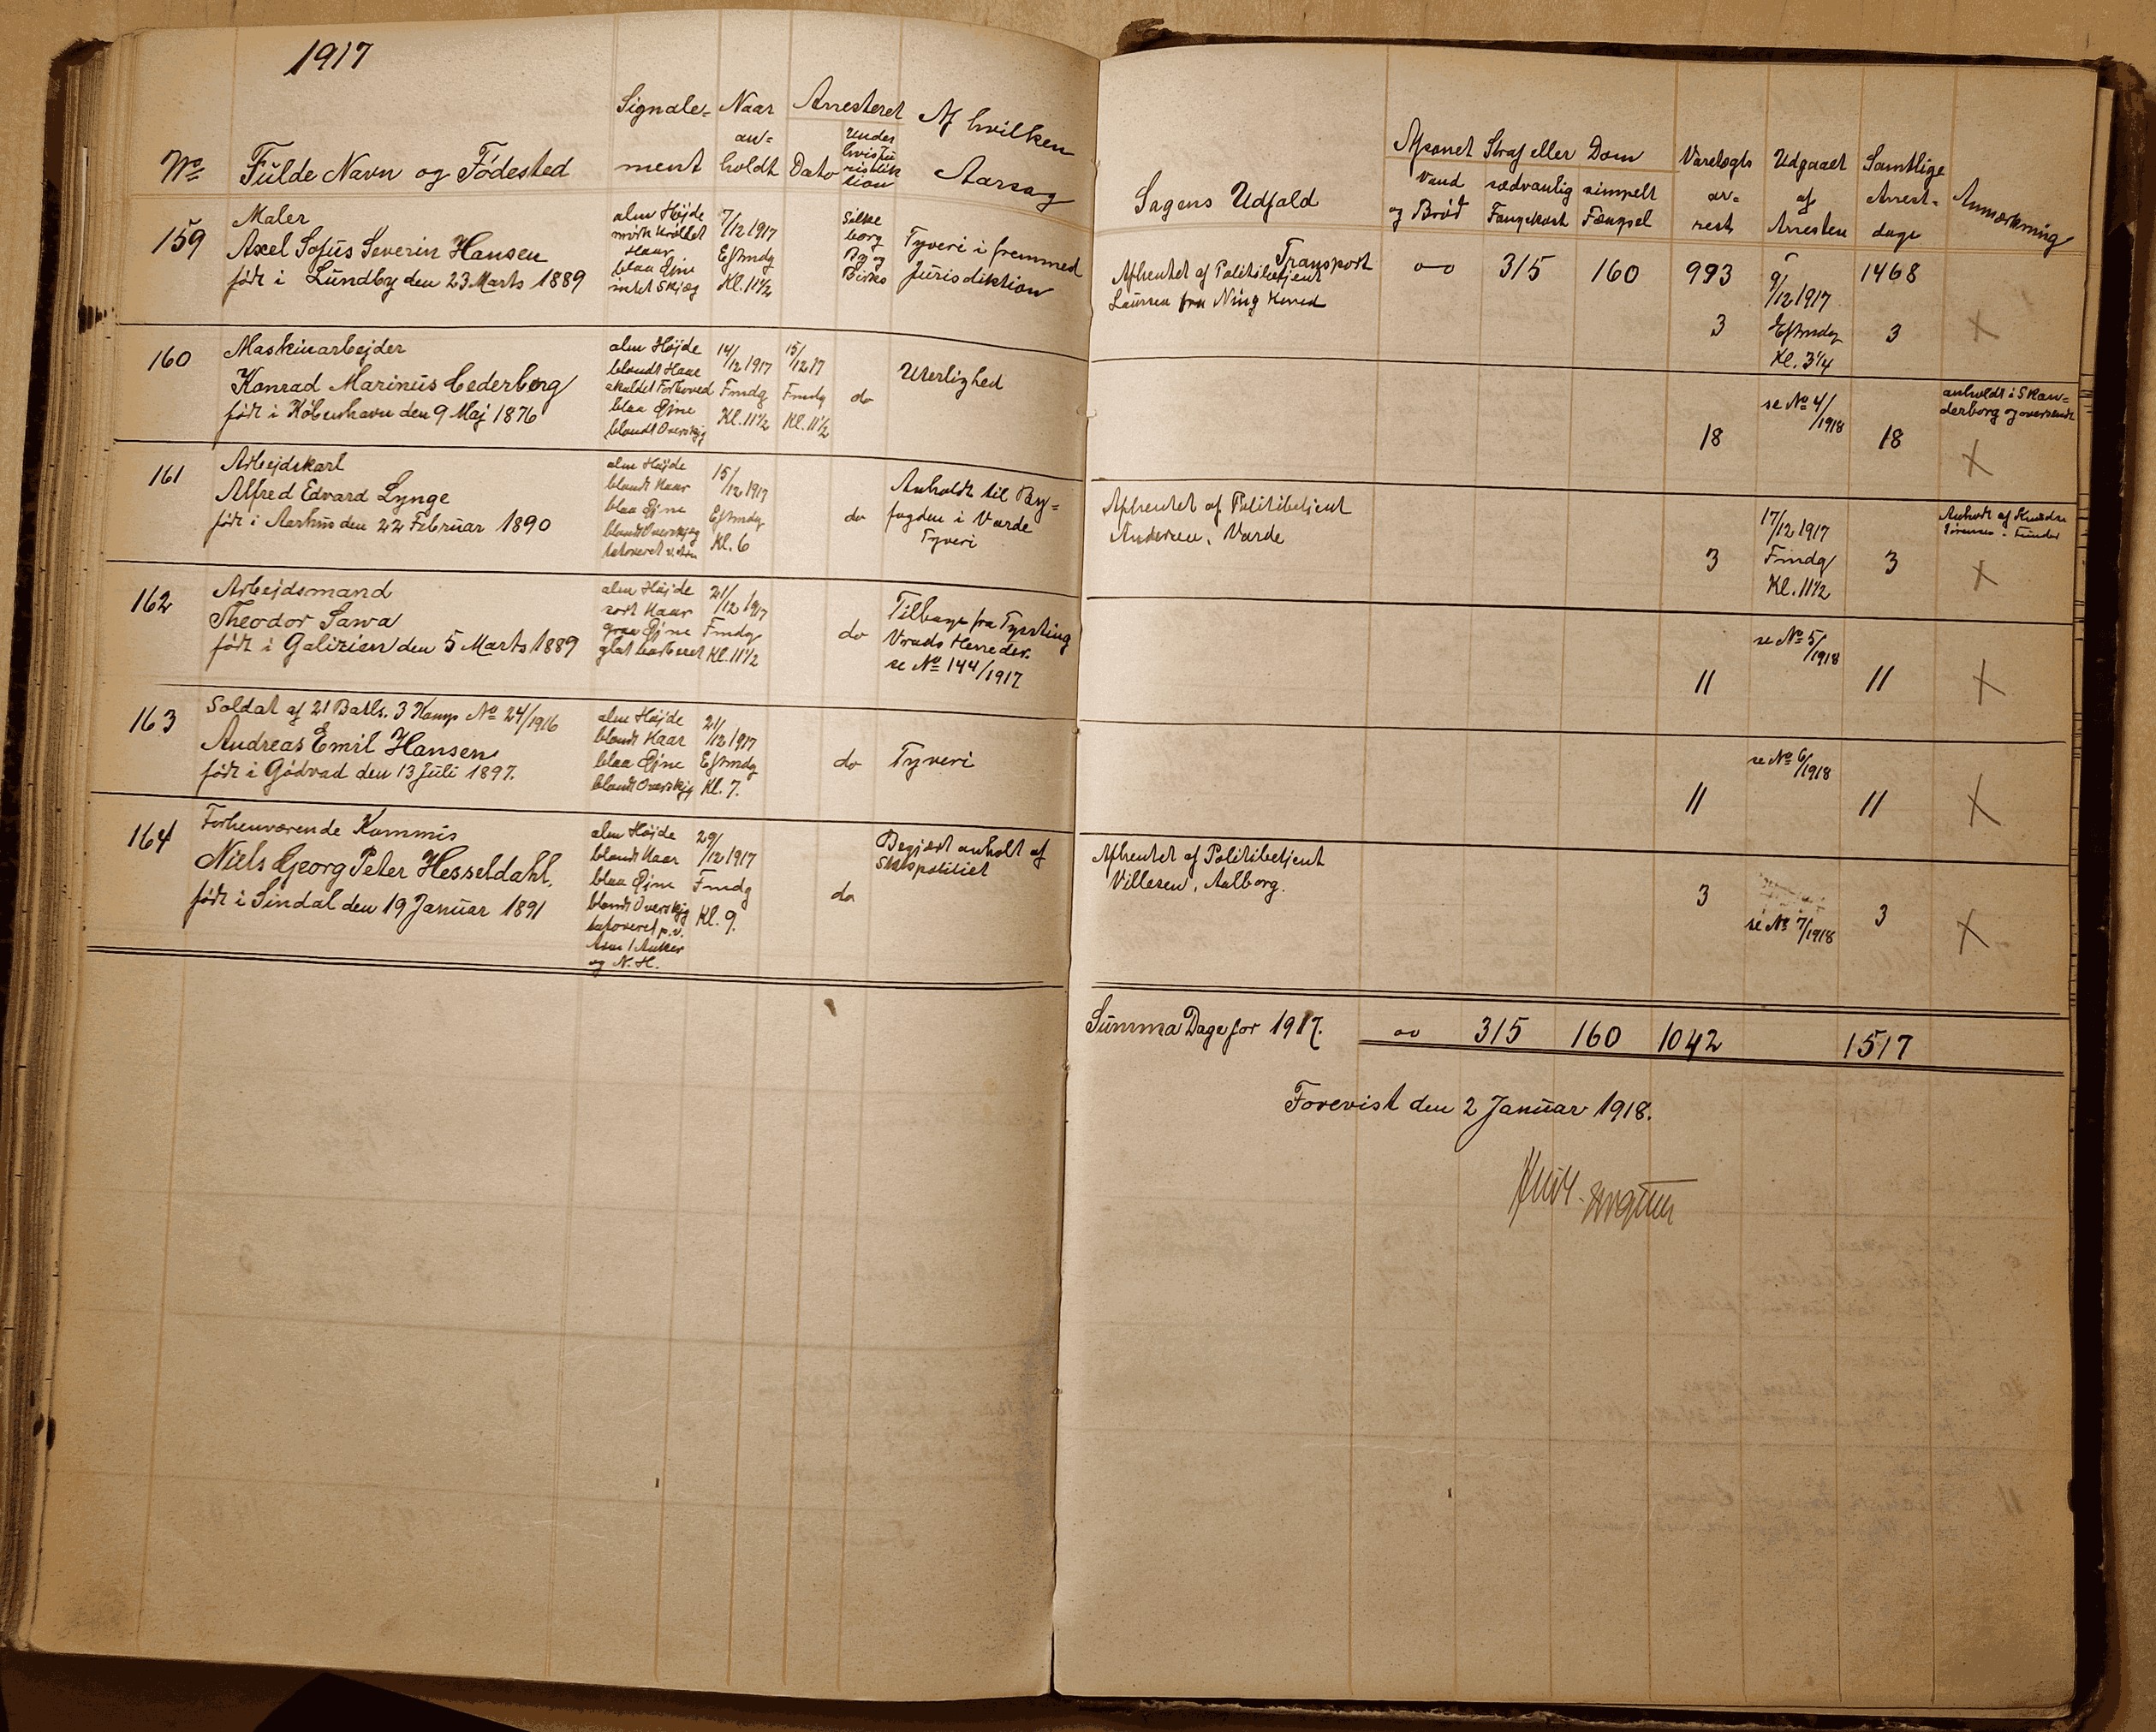 1917
No
Fulde Navn og Fødested
Signale-
ment
Naar
an-
holdt
Arresteret
Dato
Under
hvis Ju
risdik
tion
Af hvilken
Aarsag
159
Maler
Axel Sofus Severin Hansen
født i Lundby den 23 Marts 1889
alm Højde
mørk krøllet
Haar
blaa Øjne
intet Skjæg
7/12 1917
Eftmdg
Kl. 11½
Silke
borg
By og
Birks
Tyveri i fremmed
Jurisdiktion
160
Maskinarbejder
Konrad Marinus Cederberg
født i København den 9 Maj 1876
alm Højde
blondt Haar
skaldet Forhoved
blaa Øjne
blondt Overskjg
14/12 1917
Fmdg
Kl. 11½
15/12 17
Fmdg
Kl. 11½
do
Uterlighed
161
Arbejdskarl
Alfred Edvard Lynge
født i Aarhus den 22 Februar 1890
alm Højde
blondt Haar
blaa Øjne
blondt Overskjæg
tatoveret
15/12 1917
Eftmdg
Kl. 6
do
Anholdt til By-
fogden i Varde
Tyveri
162
Arbejdsmand
Theodor Sawa
født i Galizien den 5 Marts 1889
alm Højde
sort Haar
graa Øjne
glat barberet
21/12 1917
Fmdg
Kl. 11½
do
Tilbage fra Tyrsting
Vrads Herreder.
se No 144/1917
163
Soldat af 21 Batls. 3 Komp No 24/1916
Andreas Emil Hansen
født i Gødvad den 13 Juli 1897.
alm Højde
blondt Haar
blaa Øjne
blondt Overskjg
21/12 1917
Eftmdg
Kl. 7.
do
Tyveri
164
Forhenværende Kommis
Niels Georg Peter Hesseldahl.
født i Sindal den 19 Januar 1891
alm Højde
blondt Haar
blaa Øjne
blondt Overskjg
tatoveret p. v.
Arm 1 Anker
og N. H.
29/12 1917
Fmdg
Kl. 9.
do
Begjært anholt af
Statspolitiet
Sagens Udfald
Afsonet Straf eller Dom
Vand
og Brød
sædvanlig
Fangekost
simpelt
Fængsel
Varetægts
ar-
rest
Udgaaet
af
Arresten
Samtlige
Arrest-
dage
Anmærkning
Transport
Afhentet af Politibetjent
Laursen fra Ning Herred
315
160
993
1468
3
9/12 1917
Eftmdg
Kl. 3¼
3
18
se No 4/1918
18
anholdt i Skan-
derborg og oversendt
Afhentet af Politibetjent
Andersen, Varde
3
17/12 1917
Fmdg
Kl. 11½
3
11
se No 5/1918
11
11
se No 6/1918
11
Afhentet af Politibetjent
Villesen, Aalborg.
3
se No 7/1918
3
Summa Dage for 1917.
315
160
1042
1517
Forevist den 2 Januar 1918.